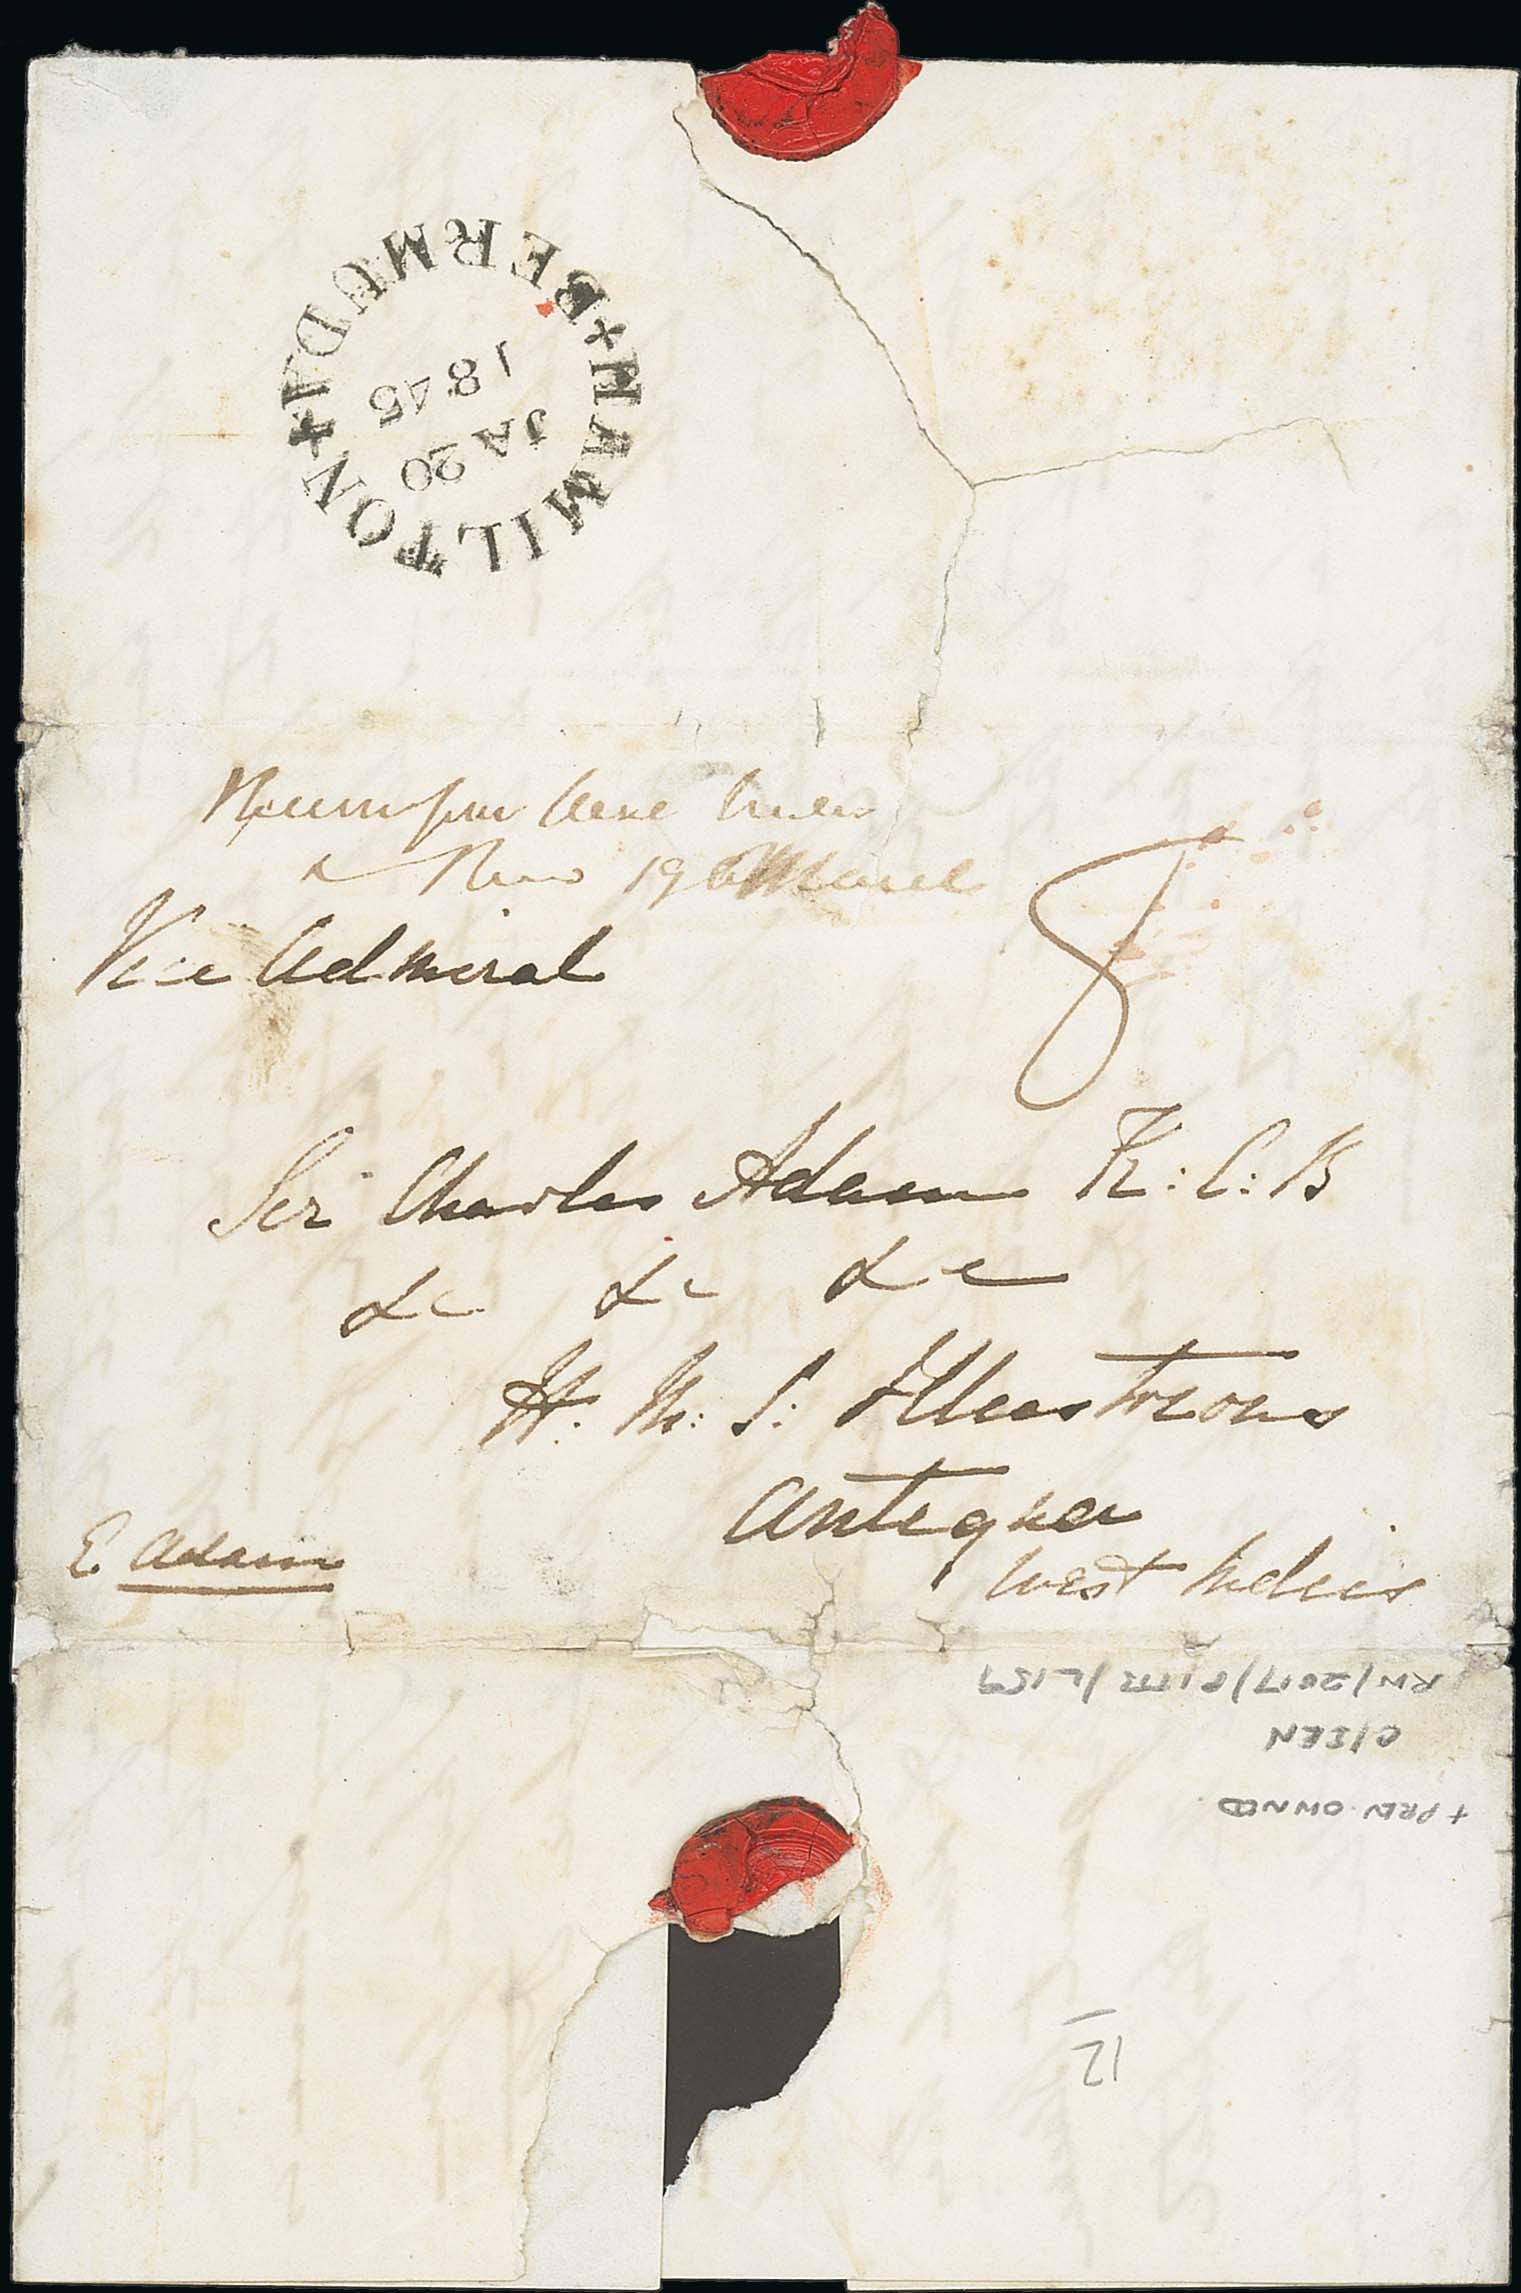 + HAMILTON + BERMUDA
JA 20
1845
19 March
Vice Admiral
8
Sir Charles Adam K: C: B
&c &c &c
H. M: S: Illustrious
Antigua
West Indies
E. Adam
RW/2017/
+ PREV OWNED
12